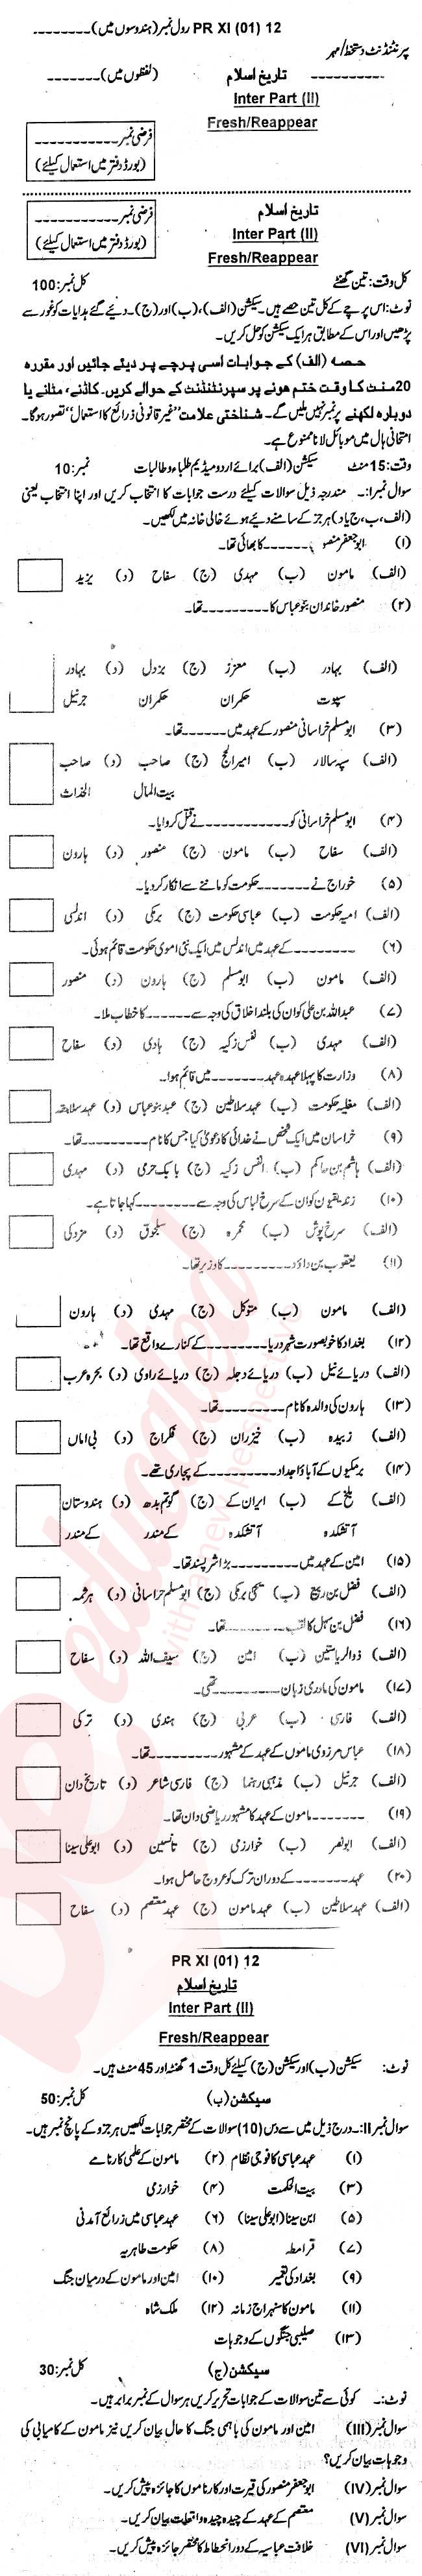 PR XI (01) 12 رول نمبر (ہندسوں میں) ---------
پرنٹنڈنٹ دستخط/مہر
---------- تاریخ اسلام (لفظوں میں) -------
Inter Part (II)
Fresh/Reappear
فرضی نمبر ------------
(بورڈ دفتر میں استعمال کیلئے)
تاریخ اسلام
Inter Part (II)
Fresh/Reappear
فرضی نمبر ------------
(بورڈ دفتر میں استعمال کیلئے)
کل وقت: تین گھنٹے کل نمبر: 100
نوٹ: اس پرچے کے کل تین حصے ہیں۔ سیکشن (الف)، (ب) اور (ج)۔ دیئے گئے ہدایات کو غور سے
پڑھیں اور اس کے مطابق ہر ایک سیکشن کو حل کریں۔
حصہ (الف) کے جوابات اسی پرچے پر دیئے جائیں اور مقررہ
20 منٹ کا وقت ختم ہونے پر سپرنٹنڈنٹ کے حوالے کریں۔ کاٹنے، مٹانے یا
دوبارہ لکھنے پر نمبر نہیں ملیں گے۔ شناختی علامت "غیر قانونی ذرائع کا استعمال" تصور ہوگا۔
امتحانی ہال میں موبائل لانا ممنوع ہے۔
وقت: 15 منٹ سیکشن (الف) برائے اردو میڈیم طلباء و طالبات نمبر: 10
سوال نمبرا:۔ مندرجہ ذیل سوالات کیلئے درست جوابات کا انتخاب کریں اور اپنا انتخاب یعنی
(الف، ب، ج یا د) ہر جز کے سامنے دیئے ہوئے خالی خانہ میں لکھیں۔
(۱) ابو جعفر منصور ------ کا بھائی تھا۔
(الف) مامون (ب) مہدی (ج) سفاح (د) یزید
(۲) منصور خاندان بنو عباس کا --------- تھا۔
(الف) بہادر (ب) معزز (ج) بزدل (د) بہادر
سپوت حکمران حکمران جرنیل
(۳) ابو مسلم خراسانی منصور کے عہد میں ------ تھا۔
(الف) سپہ سالار (ب) امیر الحج (ج) صاحب (د) صاحب
بیت المال الحداث
(۴) ابو مسلم خراسانی کو --------- نے قتل کروایا۔
(الف) سفاح (ب) مامون (ج) منصور (د) ہارون
(۵) خوراج نے -------- حکومت کو ماننے سے انکار کر دیا۔
(الف) امیہ حکومت (ب) عباسی حکومت (ج) برمکی (د) اندلسی
(۶) -------- کے عہد میں اندلس میں ایک نئی اموی حکومت قائم ہوئی۔
(الف) مامون (ب) ابو مسلم (ج) ہارون (د) منصور
(۷) عبداللہ بن علی کو ان کی بلند اخلاق کی وجہ سے ------ کا خطاب ملا۔
(الف) مہدی (ب) نفس زکیہ (ج) ہادی (د) سفاح
(۸) وزارت کا پہلا عہدہ عہد -------- میں قائم ہوا۔
(الف) مغلیہ حکومت (ب) عہد سلاطین (ج) عہد بنو عباس (د) عہد سلاجقہ
(۹) خراسان میں ایک شخص نے خدائی کا دعویٰ کیا جس کا نام --------- تھا۔
(الف) ہاشم بن حاکم (ب) النفس زکیہ (ج) بابک خرمی (د) مہدی
(۱۰) زندیقیوں کو ان کے سرخ لباس کی وجہ سے -------- کہا جاتا ہے۔
(الف) سرخ پوش (ب) محمرہ (ج) سلجوق (د) مزدکی
(۱۱) یعقوب بن داؤد --------- کا وزیر تھا۔
(الف) مامون (ب) متوکل (ج) مہدی (د) ہارون
(۱۲) بغداد کا خوبصورت شہر دریا -------- کے کنارے واقع تھا۔
(الف) دریائے نیل (ب) دریائے دجلہ (ج) دریائے راوی (د) بحرہ عرب
(۱۳) ہارون کی والدہ کا نام --------- تھا۔
(الف) زبیدہ (ب) خیزران (ج) فکراج (د) بی اماں
(۱۴) برمکیوں کے آباؤ اجداد -------- کے پجاری تھے۔
(الف) بلخ کے (ب) ایران کے (ج) گوتم بدھ (د) ہندوستان
آتشکدہ آتشکدہ کے مندر کے مندر
(۱۵) امین کے عہد میں --------- بڑا شر پسند تھا۔
(الف) فضل بن ربیع (ب) یحییٰ برمکی (ج) ابو مسلم خراسانی (د) ہرثمہ
(۱۶) فضل بن سہل کا لقب --------- تھا۔
(الف) ذوالریاستین (ب) امین (ج) سیف اللہ (د) سفاح
(۱۷) مامون کی مادری زبان --------- تھی۔
(الف) فارسی (ب) عربی (ج) ہندی (د) ترکی
(۱۸) عباس مروزی ماموں کے عہد کے مشہور --------- تھا۔
(الف) جرنیل (ب) مذہبی رہنما (ج) فارسی شاعر (د) تاریخ دان
(۱۹) ------- مامون کے عہد کا مشہور ریاضی دان تھا۔
(الف) ابونصر (ب) خوارزمی (ج) تانسین (د) ابوعلی سینا
(۲۰) عہد -------- کے دوران ترک کو عروج حاصل ہوا۔
(الف) عہد سلاطین (ب) عہد مامون (ج) عہد معتصم (د) سفاح
PR XI (01) 12
تاریخ اسلام
Inter Part (II)
Fresh/Reappear
نوٹ: سیکشن (ب) اور سیکشن (ج) کیلئے کل وقت 1 گھنٹہ اور 45 منٹ ہیں۔
سیکشن (ب) کل نمبر: 50
سوال نمبر II:۔ درج ذیل میں سے دس (10) سوالات کے مختصر جوابات لکھیں ہر جزو کے پانچ نمبر ہیں۔
(۱) عہد عباسی کا فوجی نظام (۲) مامون کے علمی کارنامے
(۳) بیت الحکمت (۴) خوارزمی
(۵) ابن سینا (ابوعلی سینا) (۶) عہد عباسی میں ذرائع آمدنی
(۷) قرامطہ (۸) حکومت طاہریہ
(۹) بغداد کی تعمیر (۱۰) امین اور مامون کے درمیان جنگ
(۱۱) مامون کا سنہراج زمانہ (۱۲) ملک شاہ
(۱۳) صلیبی جنگوں کے وجوہات
سیکشن (ج) کل نمبر: 30
نوٹ:۔ کوئی سے تین سوالات کے جوابات تحریر کریں ہر سوال کے نمبر برابر ہیں۔
سوال نمبر (III) امین اور مامون کی باہمی جنگ کا حال بیان کریں نیز مامون کے کامیابی کی
وجوہات بیان کریں؟
سوال نمبر (IV) ابو جعفر منصور کی سیرت اور کارناموں کا جائزہ پیش کریں۔
سوال نمبر (V) معتصم کے عہد کے چیدہ چیدہ واقعات بیان کریں۔
سوال نمبر (VI) خلافت عباسیہ کے دور انحطاط کا مختصر جائزہ پیش کریں۔